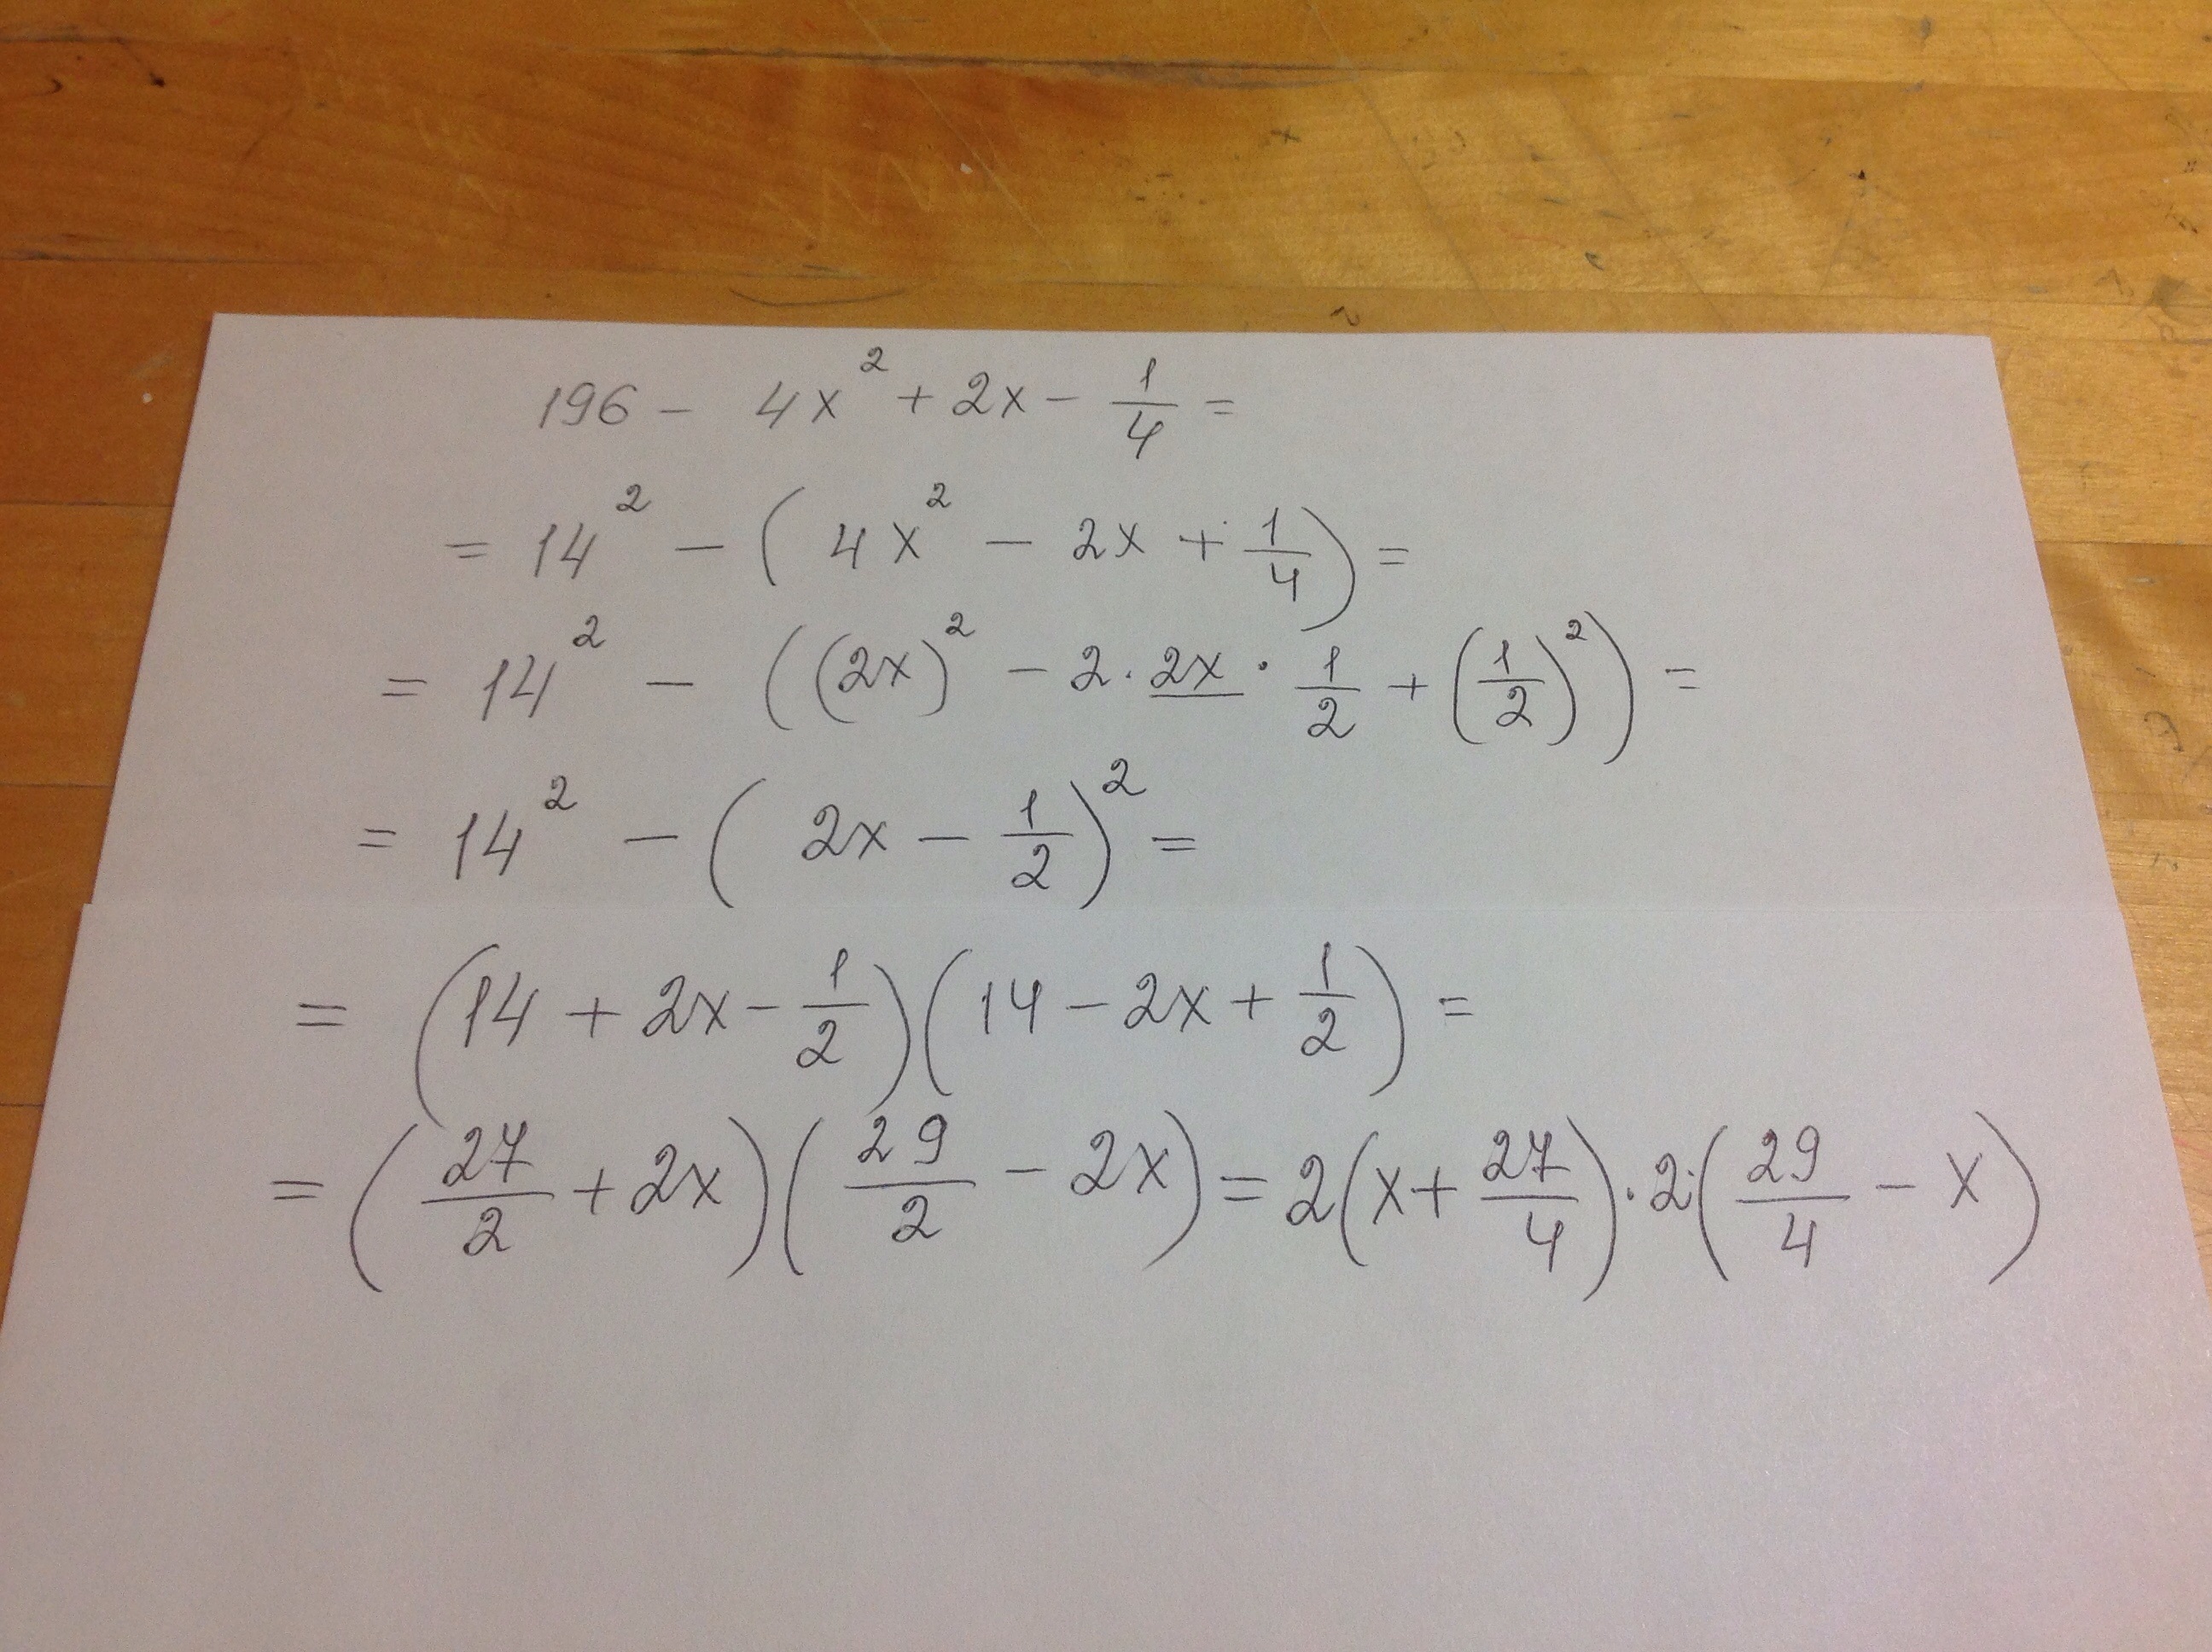 196 - 4x² + 2x - 1/4 =
= 14² - (4x² - 2x + 1/4) =
= 14² - ((2x)² - 2 · 2x · 1/2 + (1/2)²) =
= 14² - (2x - 1/2)² =
= (14 + 2x - 1/2)(14 - 2x + 1/2) =
= (27/2 + 2x)(29/2 - 2x) = 2(x + 27/4) · 2(29/4 - x)